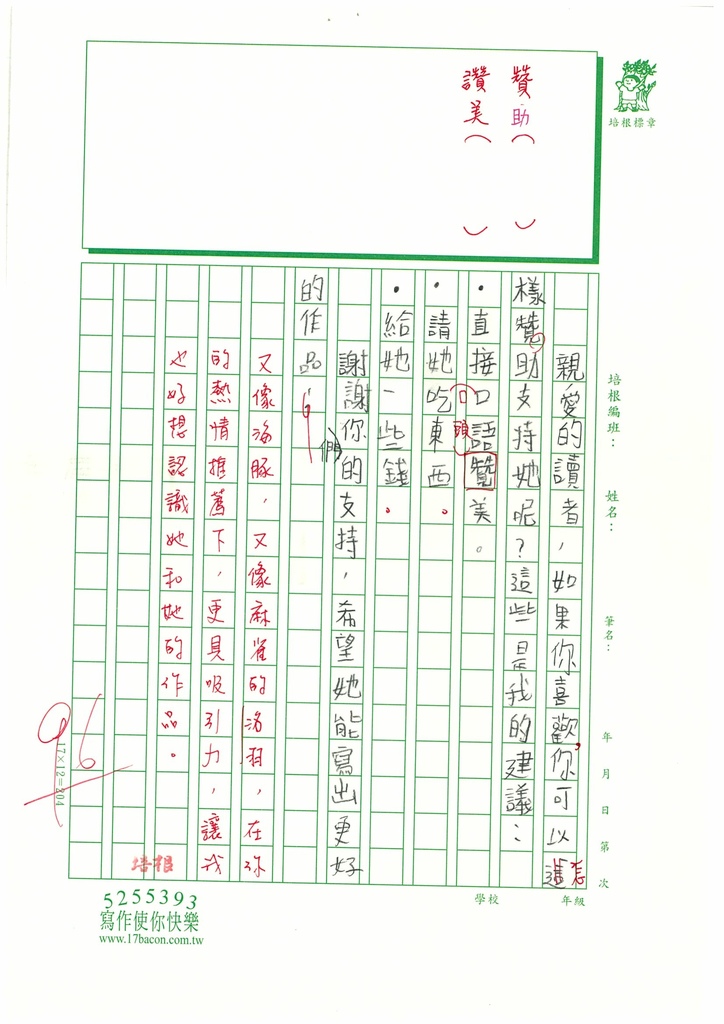 贊助（　　）
讚美（　　）
培根標章
培根編班：　姓名：　筆名：　年　月　日　第　次
學校　年級
親愛的讀者，如果你喜歡，你可以這怎
樣贊助支持她呢？這些是我的建議：
・直接口語頭贊美。
・請她吃東西。
・給她一些錢。
謝謝你們的支持，希望她能寫出更好
的作品！
又像海豚，又像麻雀的洛羽，在你
的熱情推薦下，更具吸引力，讓我
也好想認識她和她的作品。
96
17×12=204
培根
5255393
寫作使你快樂
www.17bacon.com.tw